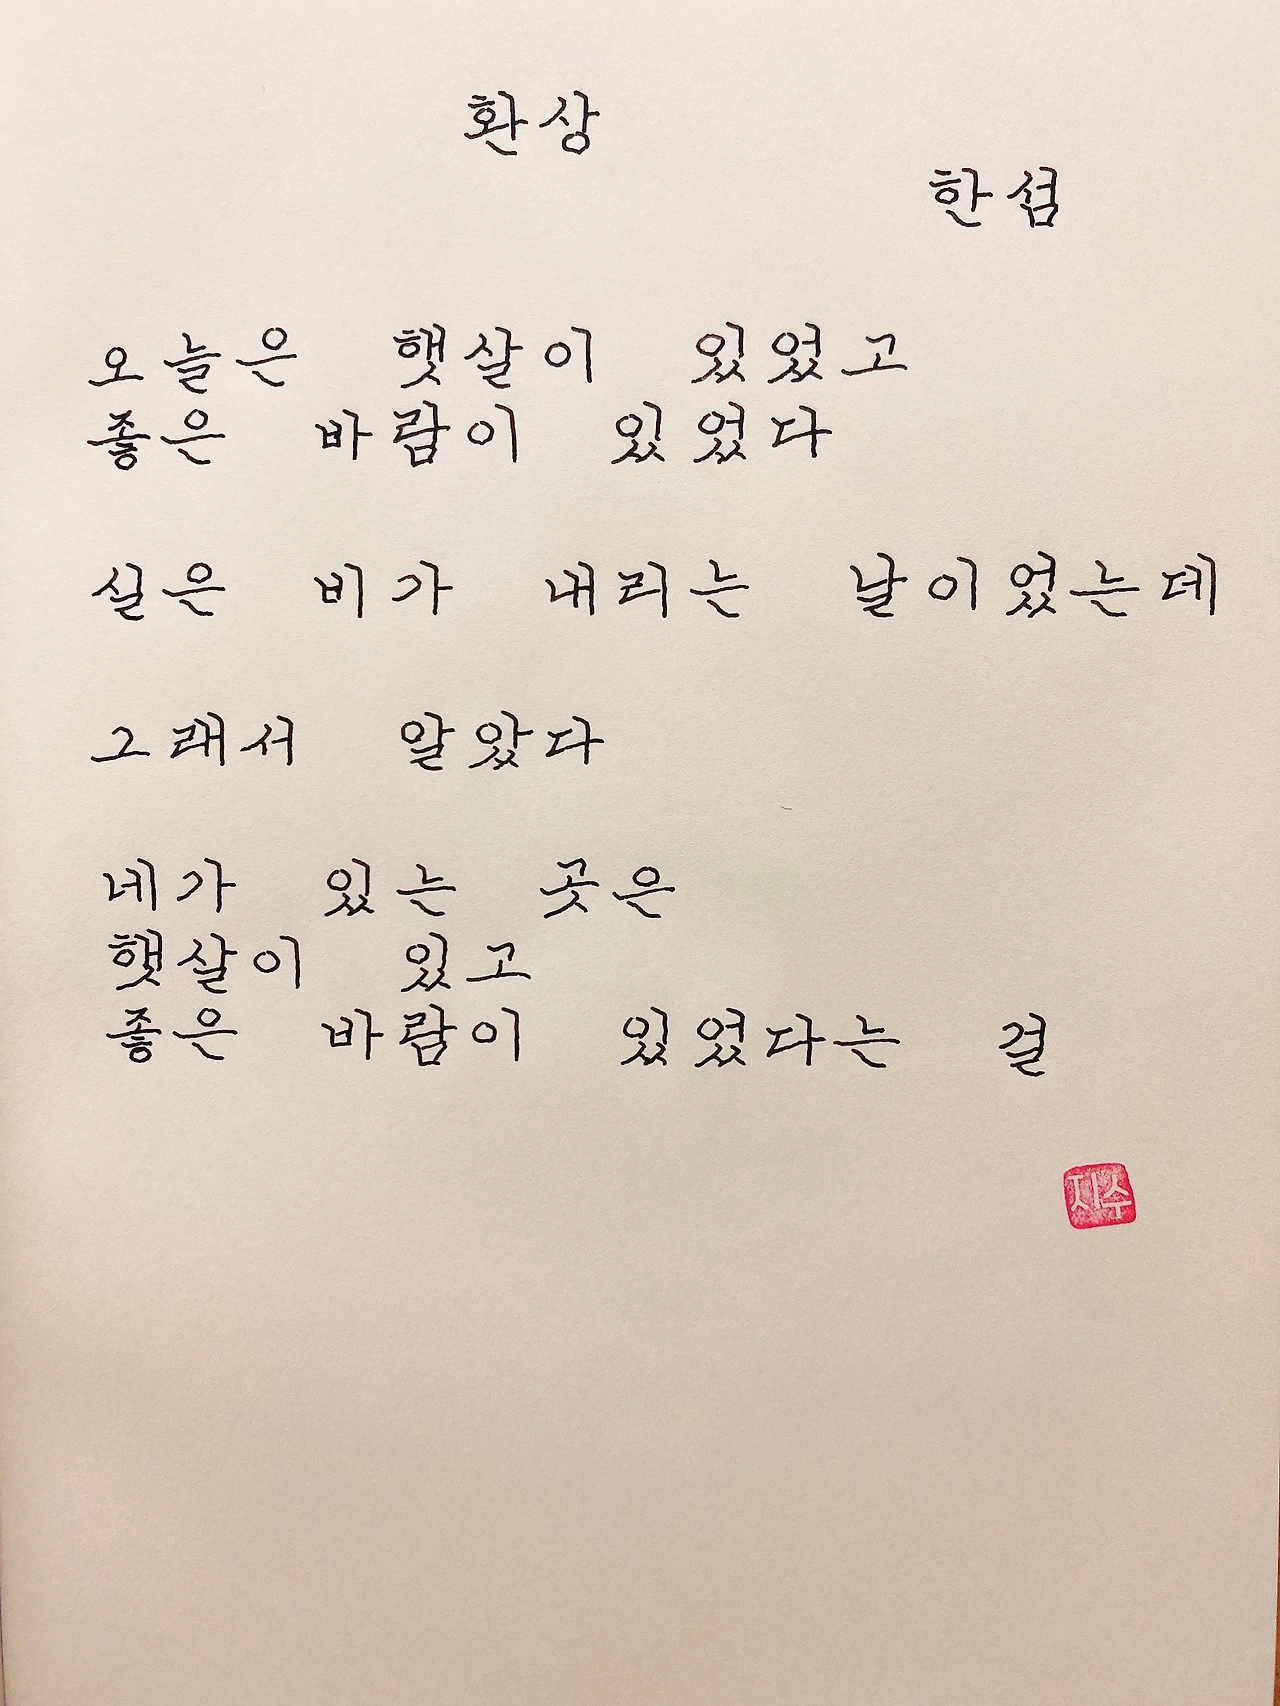 환상
한섬
오늘은 햇살이 있었고
좋은 바람이 있었다
실은 비가 내리는 날이었는데
그래서 알았다
네가 있는 곳은
햇살이 있고
좋은 바람이 있었다는 걸
지수